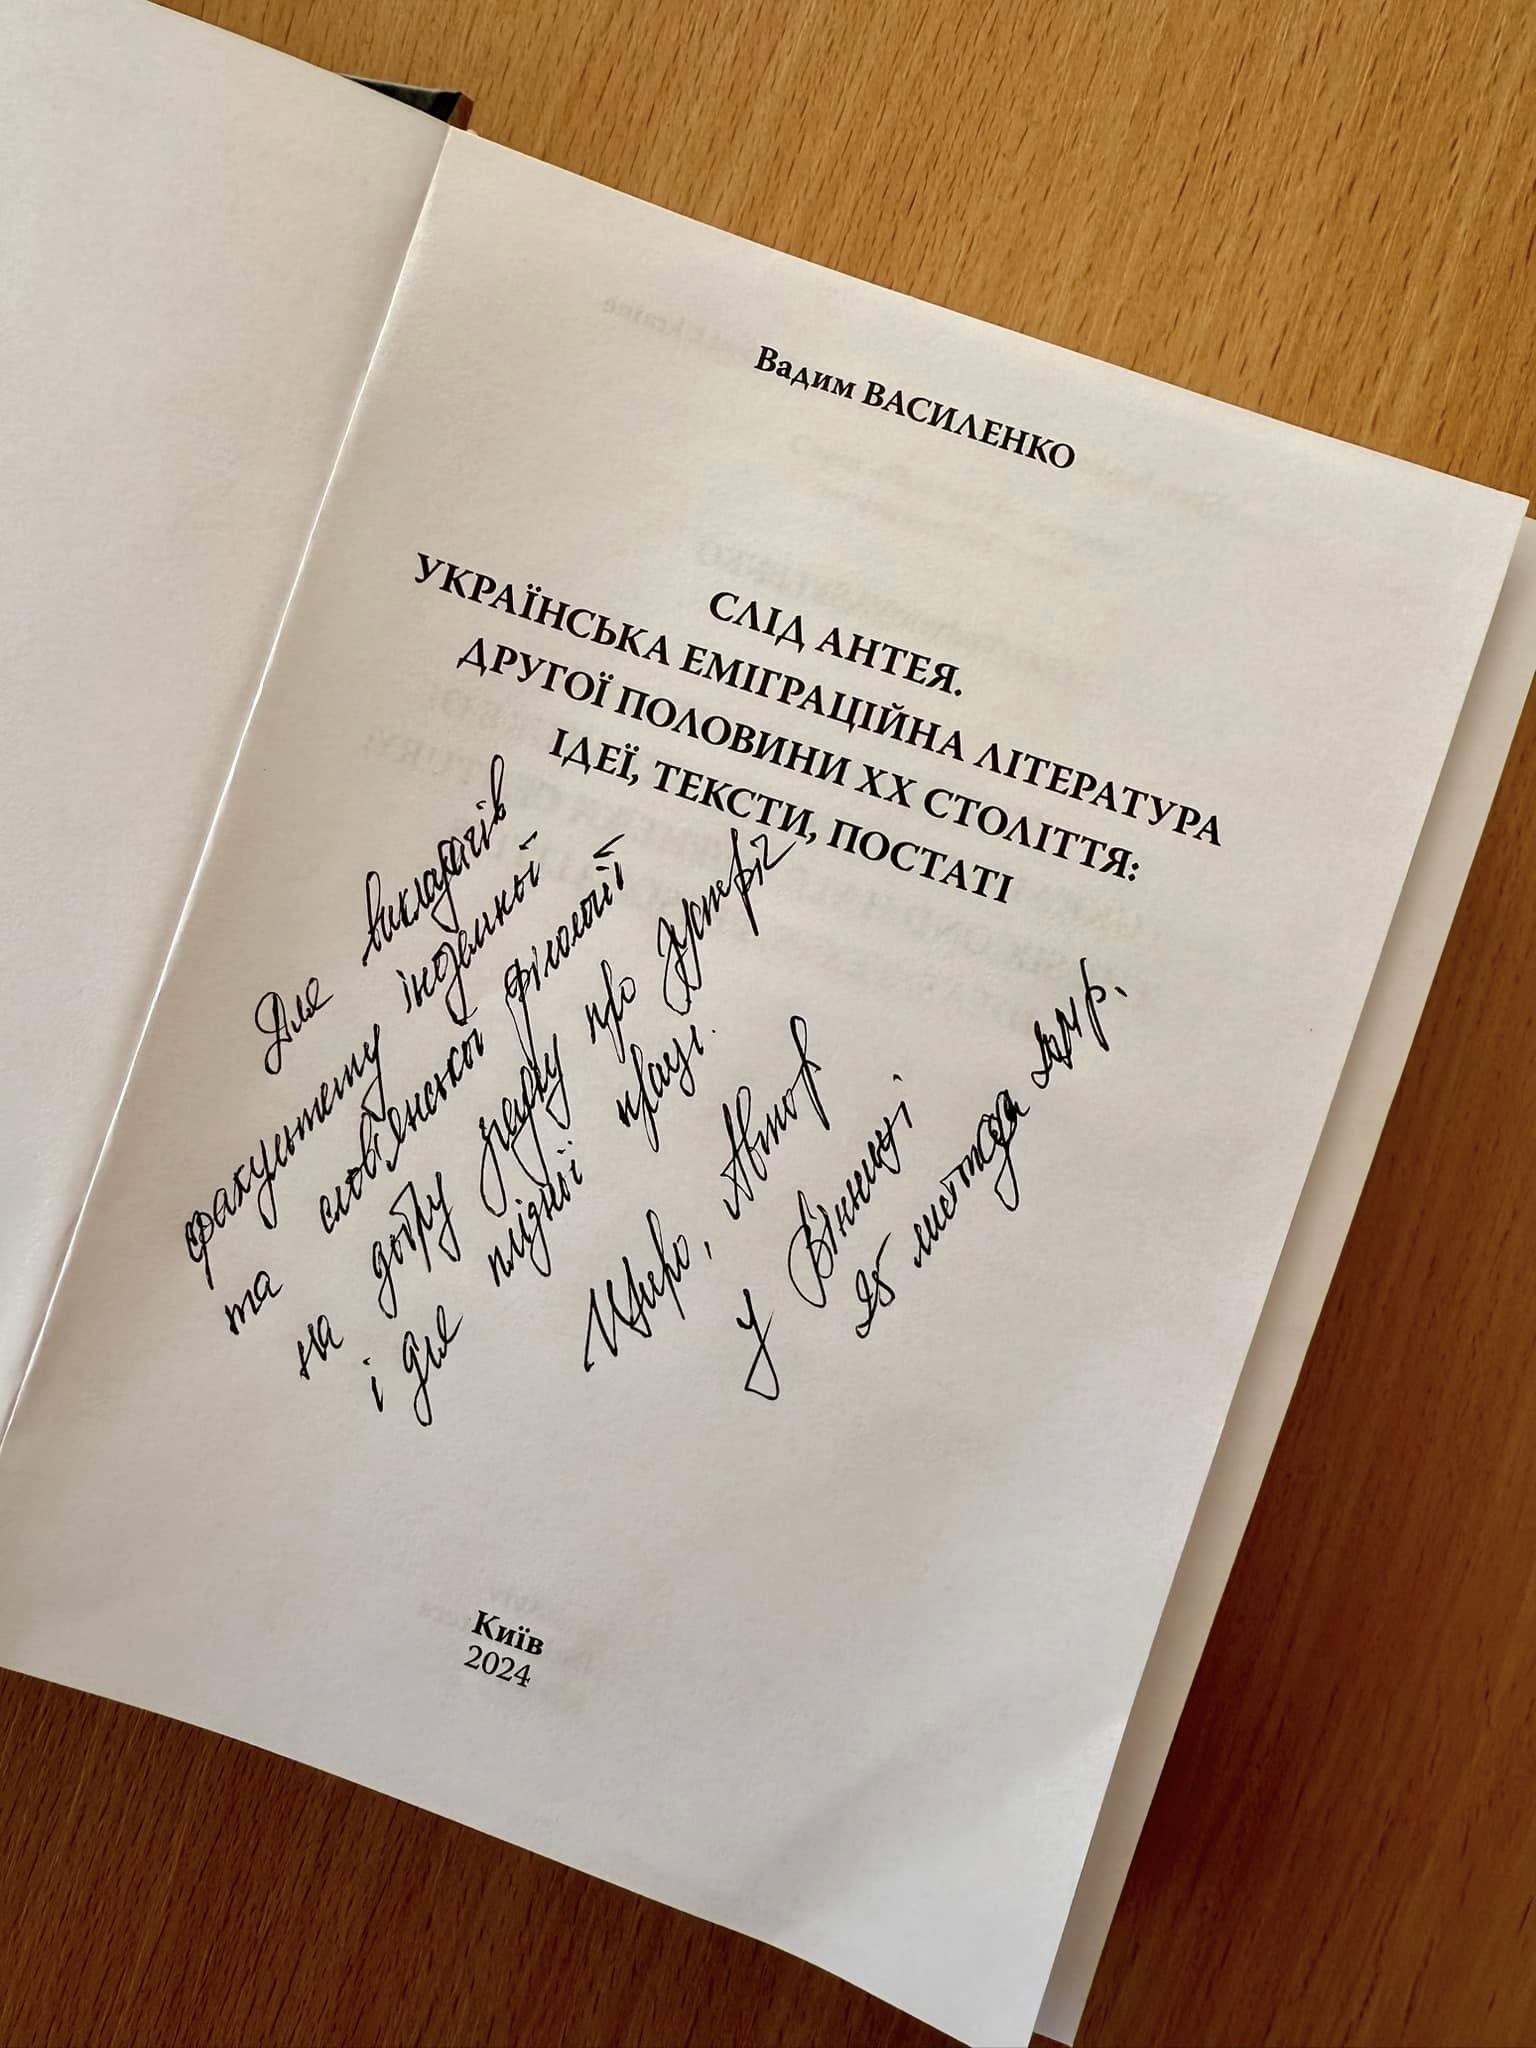 Вадим ВАСИЛЕНКО
СЛІД АНТЕЯ.
УКРАЇНСЬКА ЕМІГРАЦІЙНА ЛІТЕРАТУРА
ДРУГОЇ ПОЛОВИНИ ХХ СТОЛІТТЯ:
ІДЕЇ, ТЕКСТИ, ПОСТАТІ
Для викладачів
факультету іноземної
та слов'янської філології
на добру згадку про зустріч
і для плідної праці.
Щиро, Автор
у Вінниці
25 листопада 24 р.
Київ
2024